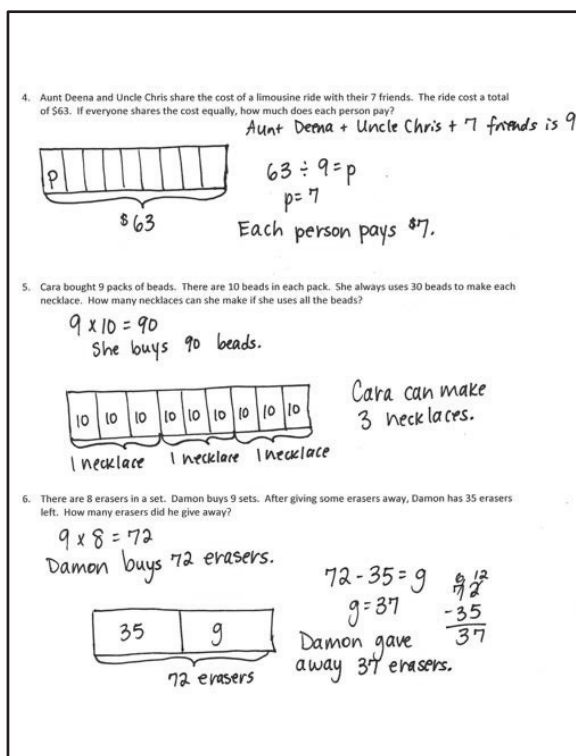 4. Aunt Deena and Uncle Chris share the cost of a limousine ride with their 7 friends. The ride cost a total
of $63. If everyone shares the cost equally, how much does each person pay?
Aunt Deena + Uncle Chris + 7 friends is 9
p
$63
63 ÷ 9 = p
p = 7
Each person pays $7.
5. Cara bought 9 packs of beads. There are 10 beads in each pack. She always uses 30 beads to make each
necklace. How many necklaces can she make if she uses all the beads?
9 x 10 = 90
She buys 90 beads.
10 10 10 10 10 10 10 10 10
1 necklace 1 necklace 1 necklace
Cara can make
3 necklaces.
6. There are 8 erasers in a set. Damon buys 9 sets. After giving some erasers away, Damon has 35 erasers
left. How many erasers did he give away?
9 x 8 = 72
Damon buys 72 erasers.
35 g
72 erasers
72 - 35 = g
g = 37
Damon gave
away 37 erasers.
6 12
72
-35
37